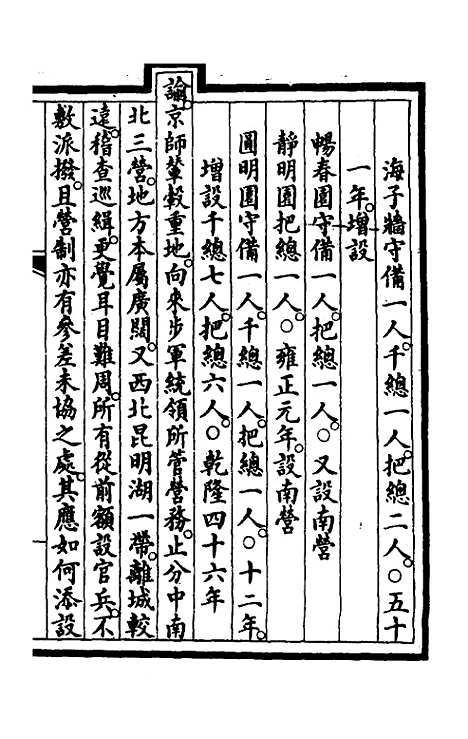 海子牆守備一人。千總一人。把總二人。○五十
一年。增設
暢春園守備一人。把總一人。○又設南營
靜明園把總一人。○雍正元年。設南營
圓明園守備一人。千總一人。把總一人。○十二年。
增設千總七人。把總六人。○乾隆四十六年
諭。京師輦轂重地。向來步軍統領所管營務。止分中南
北三營。地方本屬廣闊。又西北昆明湖一帶。離城較
遠。稽查巡緝。更覺耳目難周。所有從前額設官兵。不
敷派撥。且營制亦有參差未協之處。其應如何添設